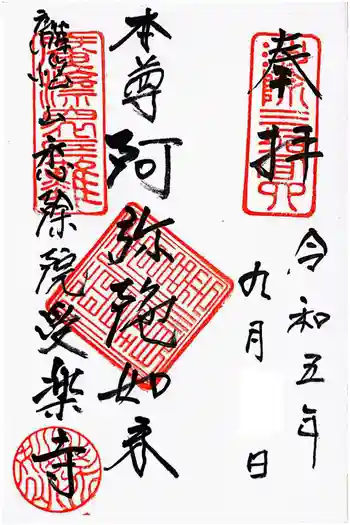 奉拝
令和五年
九月 日
本尊 阿弥陀如来
離悩山悉除院叟楽寺